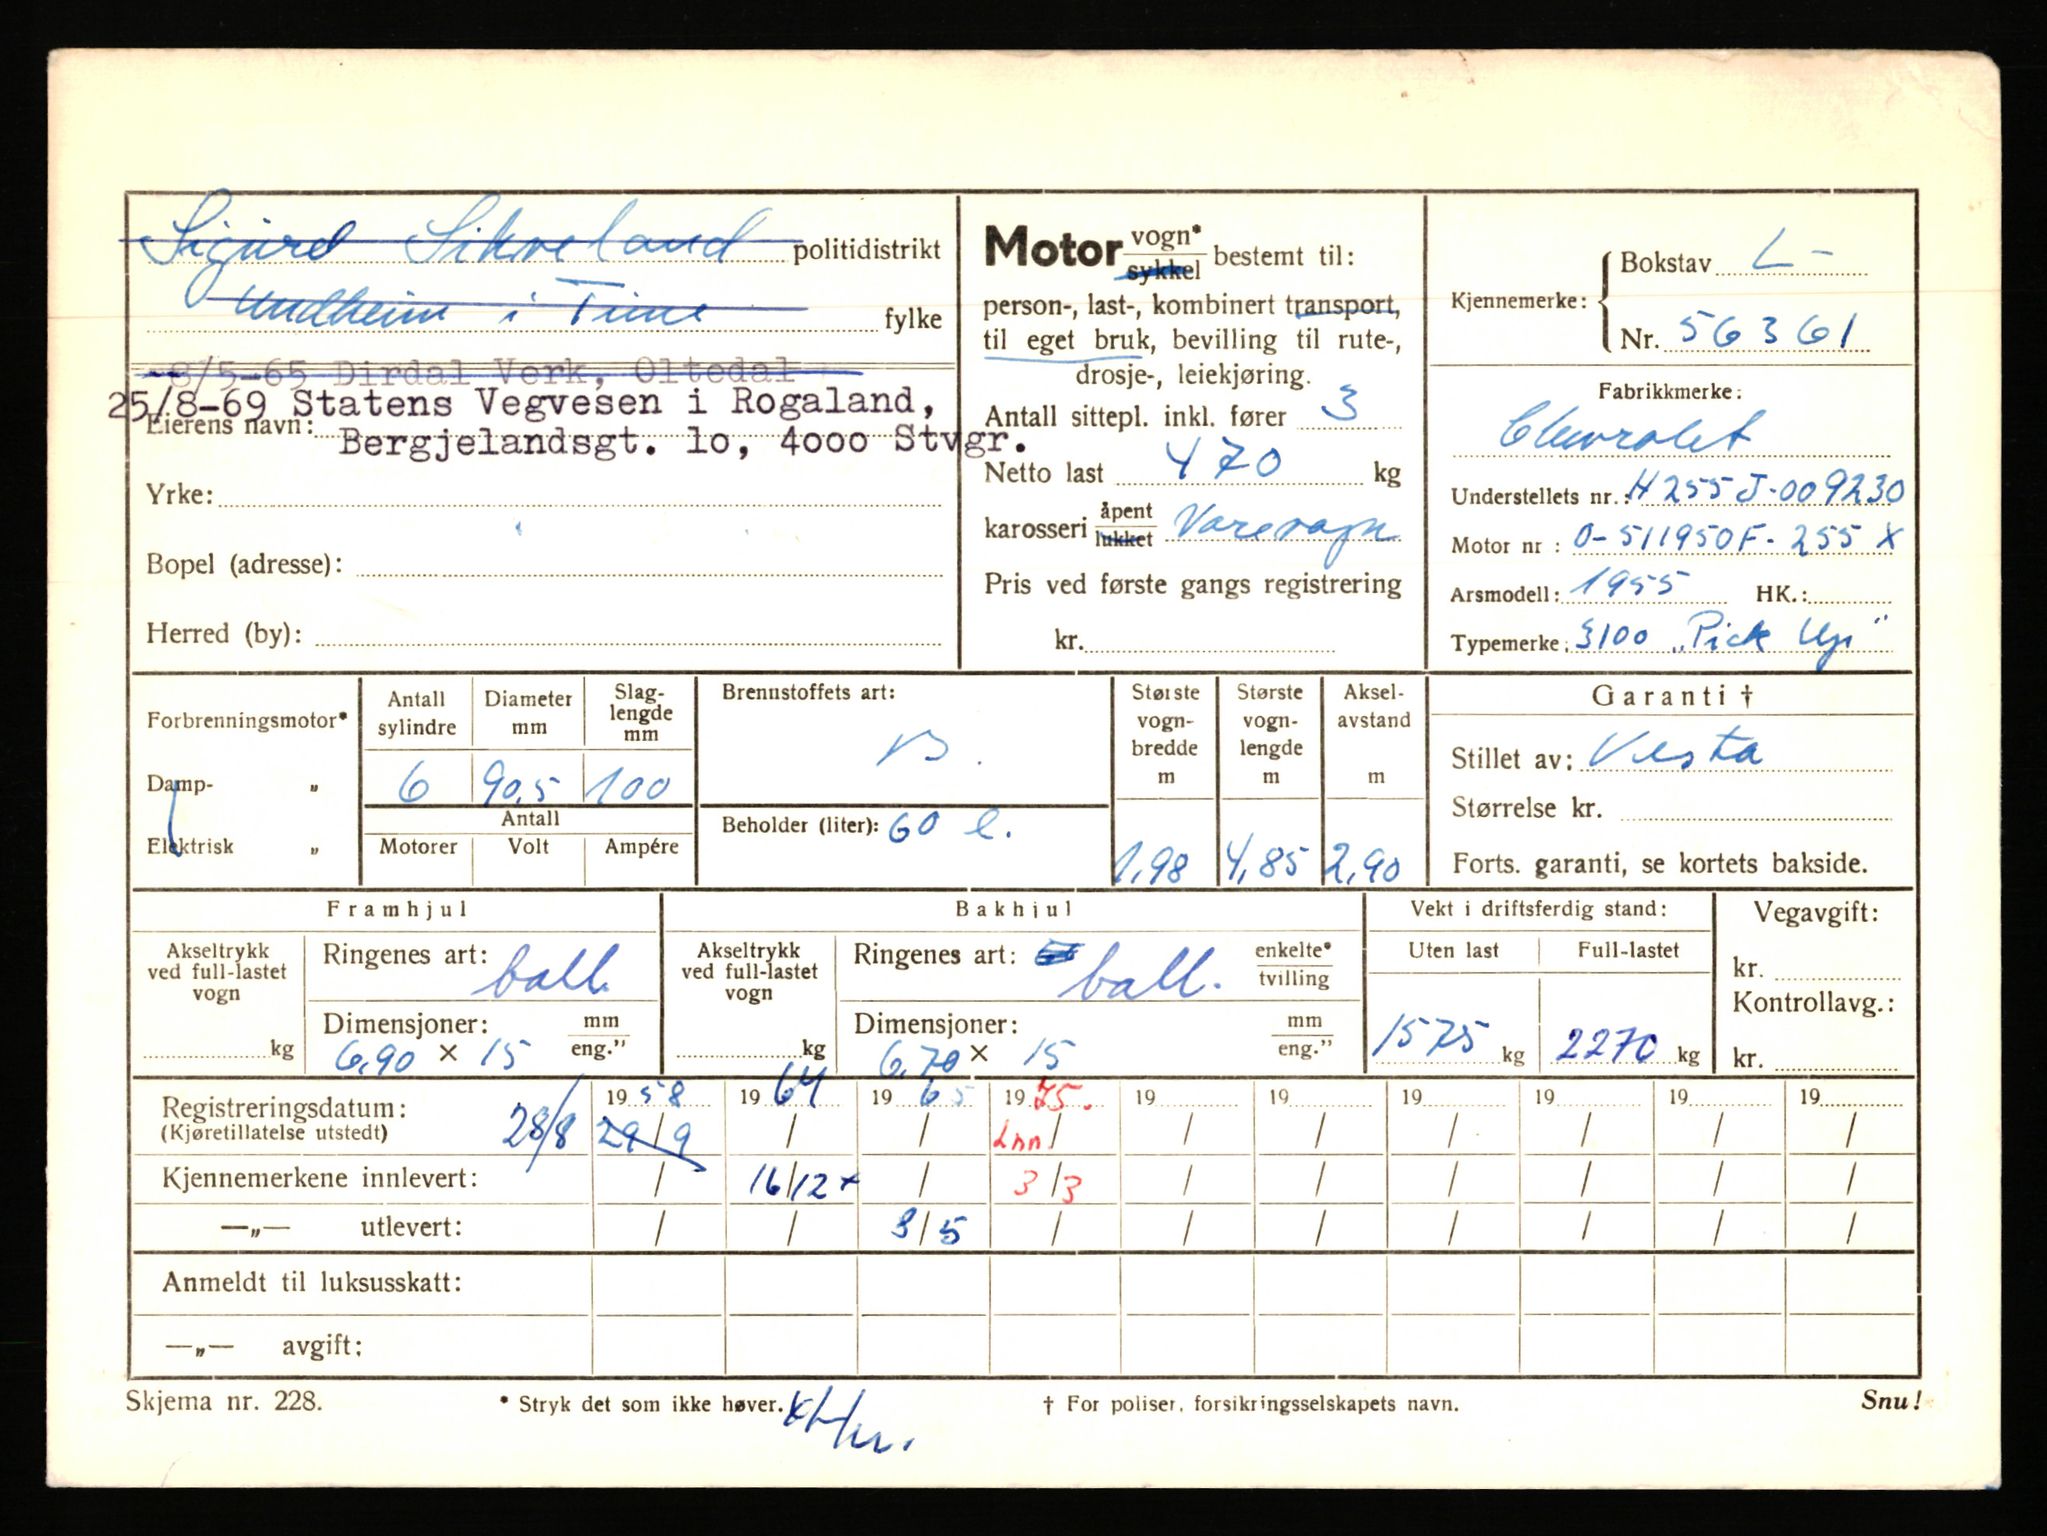 Sigurd Sikveland politidistrikt
Undheim i Time fylke
8/5-65 Dirdal Verk, Oltedal
25/8-69 Statens Vegvesen i Rogaland,
Eierens navn:
Bergjelandsgt. 10, 4000 Stvgr.
Yrke:
Bopel (adresse):
Herred (by):
Motor vogn* / sykkel bestemt til:
person-, last-, kombinert transport,
til eget bruk, bevilling til rute-,
drosje-, leiekjøring.
Antall sittepl. inkl. fører 3
Netto last 470 kg
karosseri åpent / lukket Varevogn
Pris ved første gangs registrering
kr.
Kjennemerke: Bokstav L-
Nr. 56361
Fabrikkmerke:
Chevrolet
Understellets nr.: H255J-009230
Motor nr : 0-511950F-255X
Arsmodell: 1955 HK.:
Typemerke: 3100 „Pick Up"
Forbrenningsmotor*
Damp- „
Elektrisk „
Antall sylindre Diameter mm Slag-lengde mm
6 90,5 100
Antall
Motorer Volt Ampére
Brennstoffets art:
B.
Beholder (liter): 60 l.
Største vogn-bredde m
1,98
Største vogn-lengde m
4,85
Aksel-avstand m
2,90
Garanti †
Stillet av: Vesta
Størrelse kr.
Forts. garanti, se kortets bakside.
Framhjul
Akseltrykk ved full-lastet vogn
kg
Ringenes art: ball.
Dimensjoner: mm / eng."
6,90 × 15
Bakhjul
Akseltrykk ved full-lastet vogn
kg
Ringenes art: ball. enkelte* / tvilling
Dimensjoner: mm / eng."
6,70 × 15
Vekt i driftsferdig stand:
Uten last Full-lastet
1575 kg 2270 kg
Vegavgift:
kr.
Kontrollavg.:
kr.
1958 1964 1965 1975. 19 19 19 19 19 19
Registreringsdatum:
(Kjøretillatelse utstedt) 28/8 29/9 / / Inn / / / / / / /
Kjennemerkene innlevert: / 16/12 × / 3/3 / / / / / /
—„— utlevert: / / 8/5 / / / / / / /
Anmeldt til luksusskatt:
—„— avgift:
Skjema nr. 228. * Stryk det som ikke høver. † For poliser, forsikringsselskapets navn. Snu!